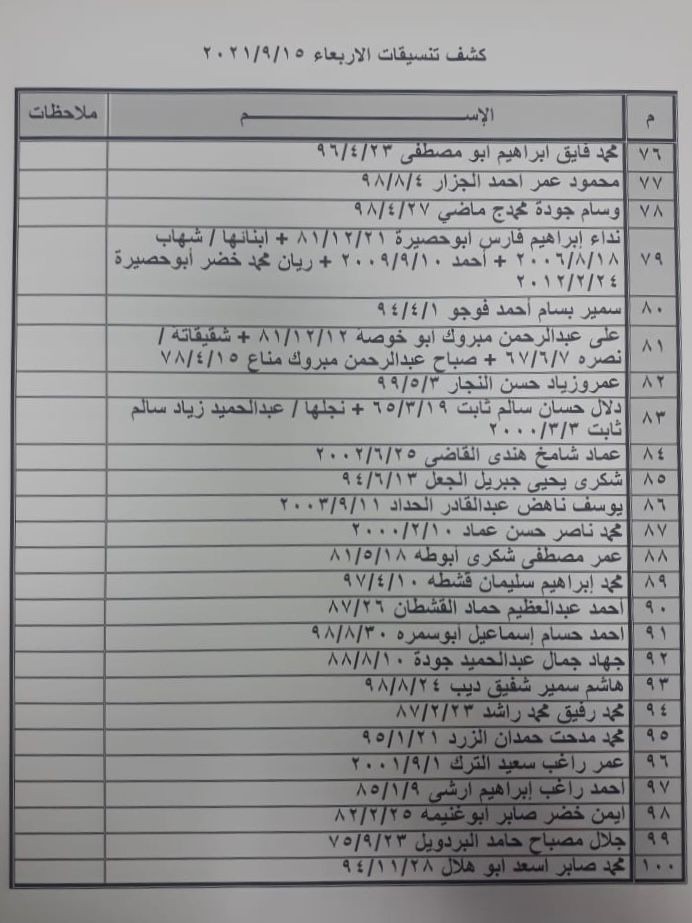 كشف تنسيقات الاربعاء ٢٠٢١/٩/١٥
م الإســـــــــم ملاحظات
٧٦ محمد فايق ابراهيم ابو مصطفى ٩٦/٤/٢٣
٧٧ محمود عمر احمد الجزار ٩٨/٨/٤
٧٨ وسام جودة محمدج ماضي ٩٨/٤/٢٧
نداء إبراهيم فارس ابوحصيرة ٨١/١٢/٢١ + ابنائها / شهاب
٧٩ ٢٠٠٦/٨/١٨ + أحمد ٢٠٠٩/٩/١٠ + ريان محمد خضر أبوحصيرة
٢٠١٢/٢/٢٤
٨٠ سمير بسام أحمد فوجو ٩٤/٤/١
٨١ على عبدالرحمن مبروك ابو خوصة ٨١/١٢/١٢ + شقيقاته /
نصره ٦٧/٦/٧ + صباح عبدالرحمن مبروك مناع ٧٨/٤/١٥
٨٢ عمروزياد حسن النجار ٩٩/٥/٣
٨٣ دلال حسان سالم ثابت ٦٥/٣/١٩ + نجلها / عبدالحميد زياد سالم
ثابت ٢٠٠٠/٣/٣
٨٤ عماد شامخ هندى القاضي ٢٠٠٢/٦/٢٥
٨٥ شكرى يحيى جبريل الجعل ٩٤/٦/١٣
٨٦ يوسف ناهض عبدالقادر الحداد ٢٠٠٣/٩/١١
٨٧ محمد ناصر حسن عماد ٢٠٠٠/٢/١٠
٨٨ عمر مصطفى شكرى أبوطه ٨١/٥/١٨
٨٩ محمد إبراهيم سليمان قشطه ٩٧/٤/١٠
٩٠ احمد عبدالعظيم حماد القشطان ٨٧/٢٦
٩١ احمد حسام إسماعيل ابوسمره ٩٨/٨/٣٠
٩٢ جهاد جمال عبدالحميد جودة ٨٨/٨/١٠
٩٣ هاشم سمير شفيق ديب ٩٨/٨/٢٤
٩٤ محمد رفيق محمد راشد ٨٧/٢/٢٣
٩٥ محمد مدحت حمدان الزرد ٩٥/١/٢١
٩٦ عمر راغب سعيد الترك ٢٠٠١/٩/١
٩٧ احمد راغب إبراهيم ارشى ٨٥/١/٩
٩٨ ايمن خضر صابر ابوغنيمه ٨٢/٢/٢٥
٩٩ جلال مصباح حامد البردويل ٧٥/٩/٢٣
١٠٠ محمد صابر اسعد ابو هلال ٩٤/١١/٢٨